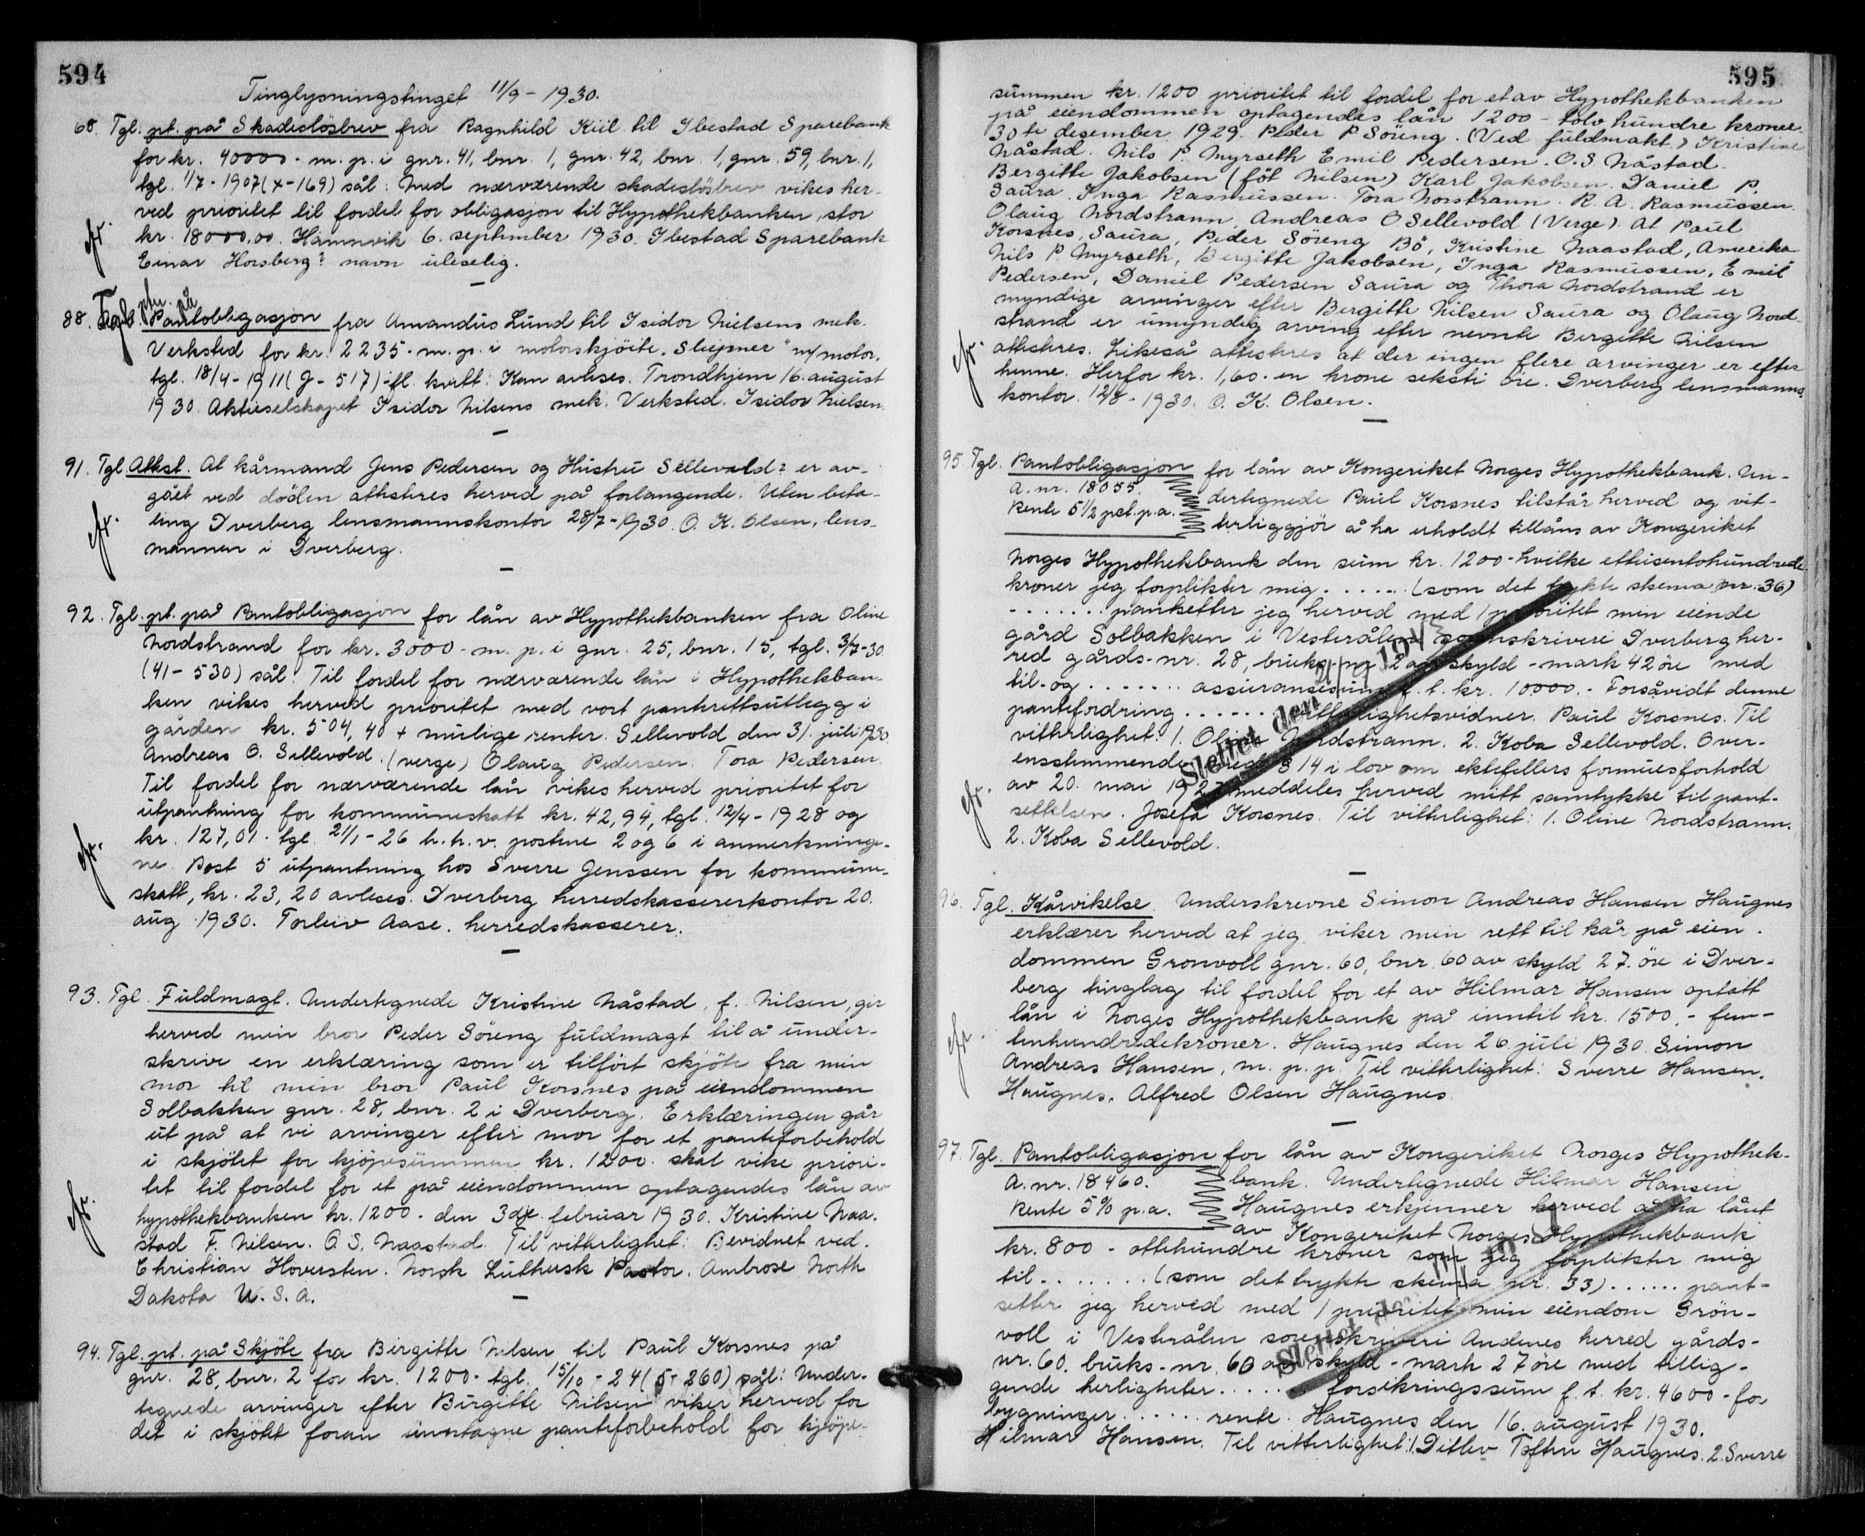 594
Tinglysningstinget 11/9 - 1930.
68. Tgl. pt. på Skadeslösbrev fra Ragnhild Kiil til Ibestad Sparebank
for kr. 40000 - m. p. i gnr. 41, bnr. 1, gnr. 42, bnr. 1, gnr. 59, bnr. 1,
tgl. 1/7 - 1907 (4-169) sål: Med nærværende skadeslösbrev vikes her-
ved prioritet til fordel for obligasjon til Hypothekbanken, stor
kr. 18000,00. Hamnvik 6. september 1930. Ibestad Sparebank
Einar Horsberg? navn uleselig.
88. Tgl. ptu. på Pantobligasjon fra Amandus Lund til Isidor Nielsens mek.
Verksted for kr. 2235 - m. p. i motorskjöite „Sleipner" m/motor,
tgl. 18/4 - 1911 (J - 517) - fl. kvitt: Kan avleses. Trondhjem 16. august
1930. Aktieselskapet Isidor Nilsens mek. Verksted. Isidor Nielsen.
91. Tgl. Attest. At kårmand Jens Pedersen og Hustru Sellevold? er av-
gået ved döden attesteres herved på forlangende. Uten beta-
ling Dverberg lensmannskontor 28/7 - 1930. O. K. Olsen, lens-
mannen i Dverberg.
92. Tgl. pt. på Pantobligasjon for lån av Hypothekbanken fra Oline
Nordstrand for kr. 3000 - m. p. i gnr. 25, bnr. 15, tgl. 3/7-30
(41 - 530) sål: Til fordel for nærværende lån i Hypothekban-
ken vikes herved prioritet med vort pantrettsutlegg i
gården kr. 504,40 + mulige renter. Sellevold den 31. juli 1930
Andreas O. Sellevold. (verge) Olaug Pedersen. Tora Pedersen.
Til fordel for nærværende lån vikes herved prioritet for
utpantning for kommuneskatt kr. 42,94, tgl. 12/4 - 1928 og
kr. 127,01. tgl. 21/1 - 26 h. h. v. postene 2 og 6 i anmerkninge-
ne. Post 5 utpantning hos Sverre Jenssen for kommune-
skatt, kr. 23,20 avleses. Dverberg herredskassererkontor 20.
aug. 1930. Torleiv Aase. herredskasserer.
93. Tgl. Fuldmagt. Undertegnede Kristine Nåstad, f. Nilsen, gir
herved min bror Peder Söreng fuldmagt til å under-
skrive en erklæring som er tilfört skjöte fra min
mor til min bror Paul Korsnes på eiendommen
Solbakken gnr. 28, bnr. 2 i Dverberg. Erklæringen går
ut på at vi arvinger efter mor for et panteforbehold
i skjötet for kjöpesummen kr. 1200. skal vike priori-
tet til fordel for et på eiendommen optagendes lån av
hypothekbanken kr. 1200 - den 3dje februar 1930. Kristine Naa-
stad F. Nilsen. O. S. Naastad. Til vitterlighet: Bevidnet ved.
Christian Hoversten. Norsk Luthersk Pastor. Ambrose North
Dakota U. S. A.
94. Tgl. pt. på Skjöte fra Birgitte Nilsen til Paul Korsnes på
gnr. 28, bnr. 2 for kr. 1200 - tgl. 15/10 - 24 (5 - 260) sål: Under-
tegnede arvinger efter Birgitte Nilsen viker herved for
det i skjötet foran inntagne panteforbehold for kjöpe-
595
summen kr. 1200 prioritet til fordel for et av Hypothekbanken
på eiendommen optagendes lån 1200 - tolv hundre kroner.
30te desember 1929. Peder P Söreng. (Ved fuldmakt) Kristine
Nåstad. Nils P. Myrseth Emil Pedersen. O. S Nåstad.
Bergitte Jakobsen (föt Nilsen) Karl Jakobsen. Daniel P.
Saura. Inga Rasmussen. Tora Norstrann. R. A. Rasmussen.
Olaug Nordstrann Andreas O Sellevold (Verge). At Paul
Korsnes, Saura, Peder Söreng Bö, Kristine Naastad, Amerika
Nils P Myrseth, Bergitte Jakobsen, Inga Rasmussen, Emil
Pedersen, Daniel Pedersen Saura og Thora Nordstrand er
myndige arvinger efter Bergitte Nilsen Saura og Olaug Nord-
strand er umyndig arving efter nevnte Bergitte Nilsen
attesteres. Likeså attesteres at der ingen flere arvinger er efter
henne. Herfor kr. 1,60 - en krone seksti öre. Dverberg lensmanns-
kontor 12/8 - 1930. O. K. Olsen.
95. Tgl. Pantobligasjon for lån av Kongeriket Norges Hypothekbank. Un-
a. nr. 18055. dertegnede Paul Korsnes tilstår herved og vit-
Rente 5 1/2 pct. p. a. terliggjör å ha erholdt tillåns av Kongeriket
Norges Hypothekbank den sum kr. 1200 - hvilke ettusentohundrede
kroner jeg forplikter mig . . . . . (som det trykte skema nr. 36)
. . . . . . . pantsetter jeg herved med 1 prioritet min eiende
gård Solbakken i Vesterålen sorenskriveri Dverberg her-
red gårds-nr. 28, bruks-nr. 2 av skyld - mark 42 öre med
til- og . . . . . . . assuransesum f. t. kr. 10000. - Forsåvidt denne
pantefordring . . . . . . vitterlighetsvidner. Paul Korsnes. Til
vitterlighet: 1. Oline Nordstrann. 2. Koba Sellevold. Over-
ensstemmende med § 14 i lov om ektefellers formuesforhold
av 20. mai 1927 meddeles herved mitt samtykke til pant-
settelsen. Josefa Korsnes. Til vitterlighet: 1. Oline Nordstrann.
2. Koba Sellevold.
Slettet den
96. Tgl. Kårvikelse. Underskrevne Simon Andreas Hansen Haugnes
erklærer herved at jeg viker min rett til kår på eien-
dommen Grönvoll gnr. 60, bnr. 60 av skyld 27 öre i Dver-
berg tinglag til fordel for et av Hilmar Hansen optatt
lån i Norges Hypothekbank på inntil kr. 1500. - fem-
tenhundredekroner. Haugnes den 26. juli 1930. Simon
Andreas Hansen, m. p. p. Til vitterlighet: Sverre Hansen.
Haugnes. Alfred Olsen Haugnes.
97. Tgl. Pantobligasjon for lån av Kongeriket Norges Hypothek-
a. nr. 18460. bank. Undertegnede Hilmar Hansen
Rente 5% p. a. Haugnes erkjenner herved å ha lånt
av Kongeriket Norges Hypothekbank
kr. 800 - ottehundre kroner som jeg forplikter mig
til . . . . . . . (som det trykte skema nr. 33) . . . . . . pant-
setter jeg herved med 1 prioritet min eiendom Grön-
voll i Vesterålen sorenskriveri Andenes herred gårds-
nr. 60. bruks-nr. 60 av skyld - mark 27 öre med tillig-
gende herligheter . . . . . forsikringssum f. t. kr. 4600 - for
bygninger . . . . . . rente. Haugnes den 16. august 1930.
Hilmar Hansen. Til vitterlighet: 1. Ditlev Toften Haugnes. 2. Sverre
Slettet den